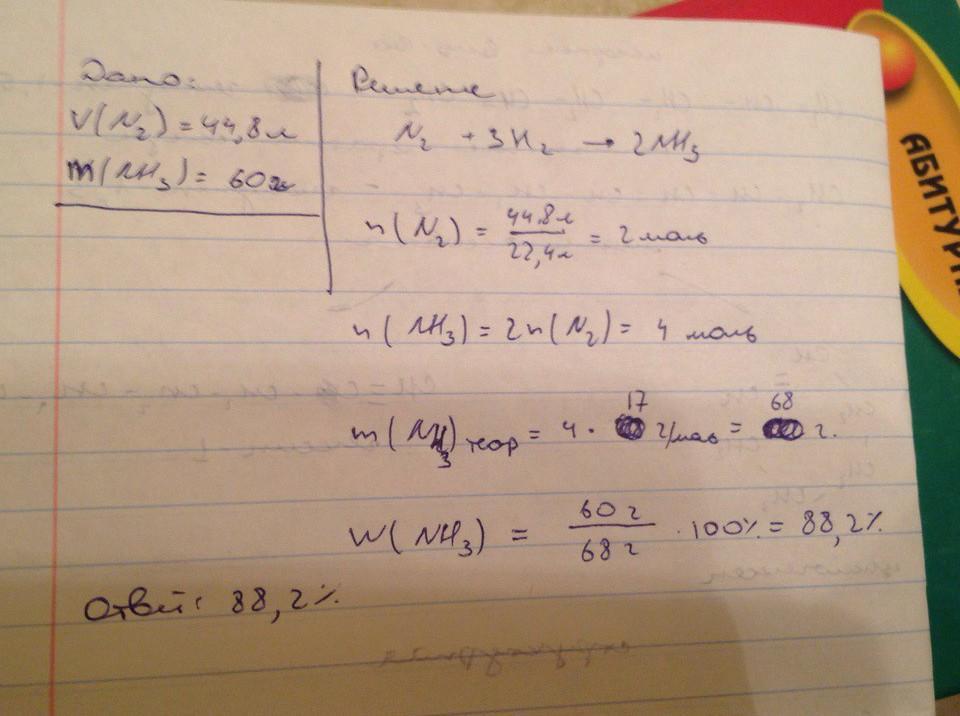 Дано:
V(N₂) = 44,8 л
m(NH₃) = 60 г
Решение
N₂ + 3H₂ → 2NH₃
n(N₂) = 44,8 л / 22,4 л = 2 моль
n(NH₃) = 2n(N₂) = 4 моль
m(NH₃) теор = 4 · 17 г/моль = 68 г.
W(NH₃) = 60 г / 68 г · 100% = 88,2%
Ответ: 88,2%.
АБИТУР